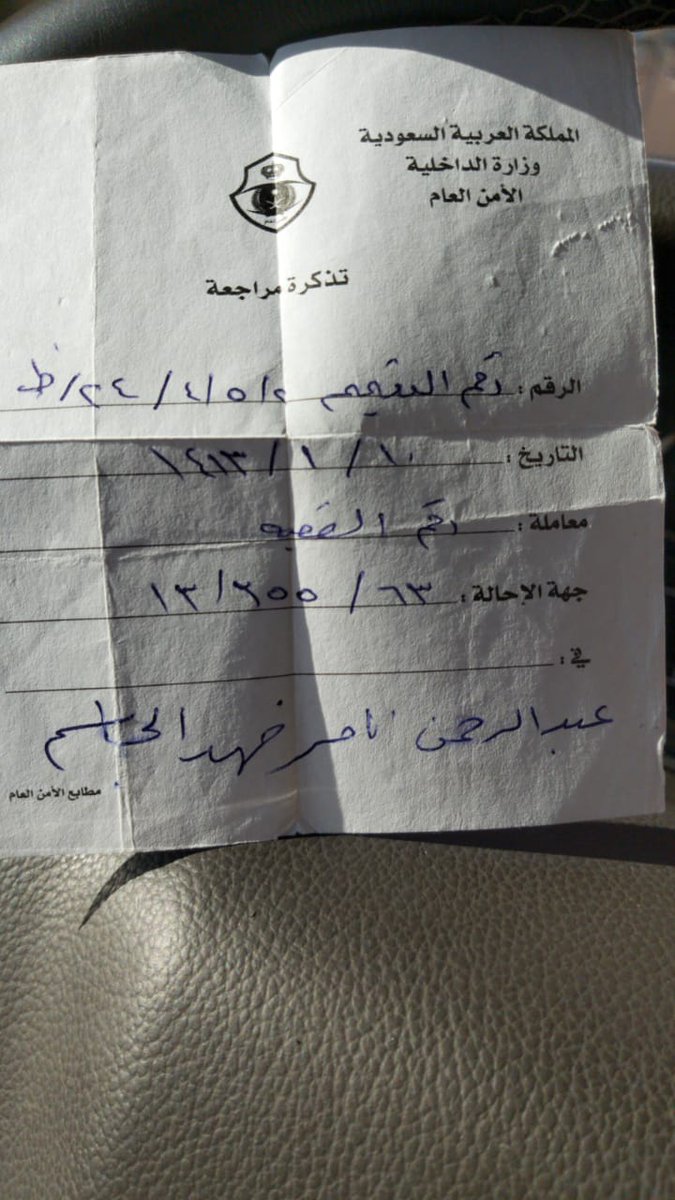 المملكة العربية السعودية
وزارة الداخلية
الأمن العام
تذكرة مراجعة
الرقم : رقم التعميم ٢٤/٤/٥/٢/ظ
التاريخ : ١٤١٣/١/١٠
معاملة : رقم القضيه
جهة الإحالة : ١٣/٣٥٥/٦٣
في :
عبدالرحمن ناصر فهد
مطابع الأمن العام